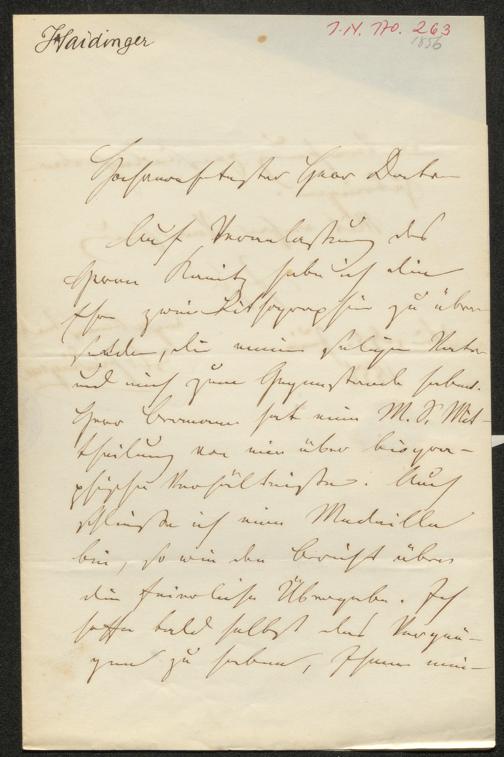 Haidinger
I.N. 170.263
1856
Hochverehrtester Herr Doctor
Auf Veranlassung des
Herrn Kanitz habe ich die
Ehre zwei Lithographien zu über-
senden, die meinen seligen Vater
und mich zum Gegenstande haben.
Herr Bermann hat eine M. S. Mit-
theilung von mir über biogra-
phische Verhältnisse. Auch
schließe ich eine Medaille
bei, so wie den Bericht über
die feierliche Übergabe. Ich
hoffe bald selbst das Vergnü-
gen zu haben, Ihnen mei-